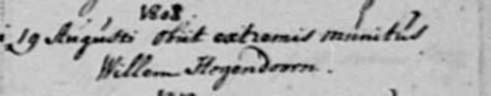 1808.
19 Augusti obiit extremis munitus
Willem Hogendoorn.